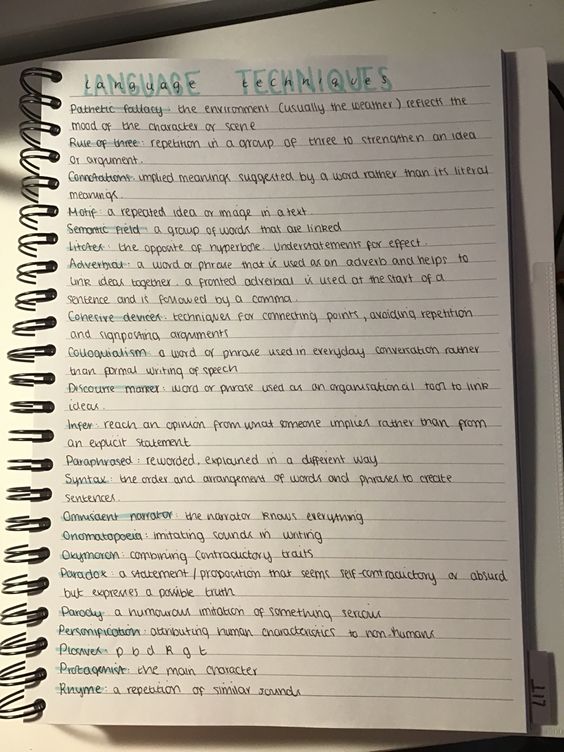 LANGUAGE TECHNIQUES
language techniques
Pathetic fallacy: the environment (usually the weather) reflects the
mood of the character or scene
Rule of three: repetition in a group of three to strengthen an idea
or argument.
Connotations: implied meanings suggested by a word rather than its literal
meanings.
Motif: a repeated idea or image in a text.
Semantic field: a group of words that are linked
Litotes: the opposite of hyperbole. Understatements for effect.
Adverbial: a word or phrase that is used as an adverb and helps to
link ideas together. a fronted adverbial is used at the start of a
sentence and is followed by a comma.
Cohesive devices: techniques for connecting points, avoiding repetition
and signposting arguments
Colloquialism: a word or phrase used in everyday conversation rather
than formal writing of speech
Discourse marker: word or phrase used as an organisational tool to link
ideas.
Infer: reach an opinion from what someone implies rather than from
an explicit statement
Paraphrased: reworded, explained in a different way
Syntax: the order and arrangement of words and phrases to create
sentences.
Omniscient narrator: the narrator knows everything
Onomatopoeia: imitating sounds in writing
Oxymoron: combining contradictory traits
Paradox: a statement/proposition that seems self-contradictory or absurd
but expresses a possible truth
Parody: a humourous imitation of something serious
Personification: attributing human characteristics to non-humans
Plosives: p b d k g t
Protagonist: the main character
Rhyme: a repetition of similar sounds
LIT